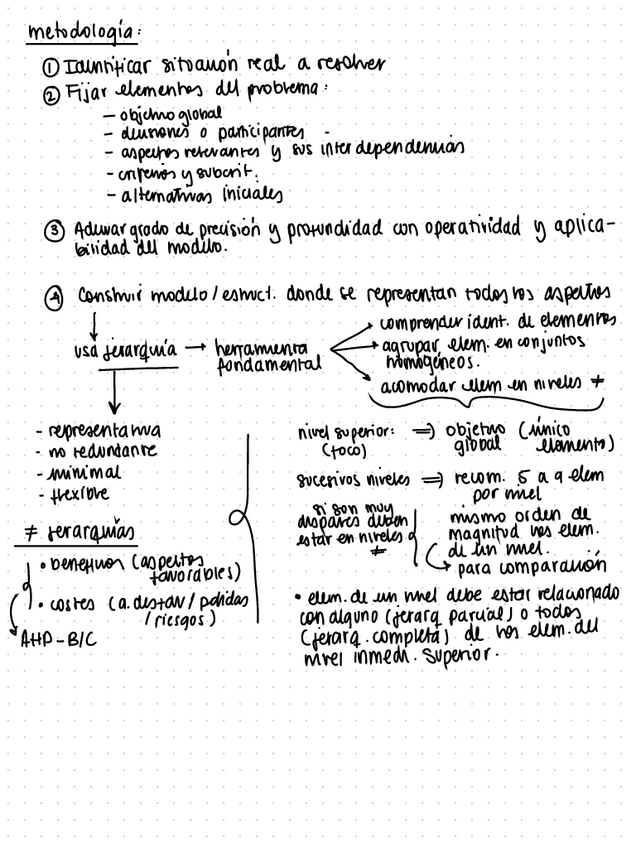 metodología:
① Identificar situación real a resolver
② Fijar elementos del problema:
- objetivo global
- decisiones o participantes -
- aspectos relevantes y sus interdependencias
- criterios y subcrit.
- alternativas iniciales
③ Adecuar grado de precisión y profundidad con operatividad y aplica-
bilidad del modelo.
④ Construir modelo/estruct. donde se representan todos los aspectos
usa jerarquía → herramienta
fundamental
comprender ident. de elementos
agrupar elem. en conjuntos
homogéneos.
acomodar elem en niveles ≠
- representativa
- no redundante
- minimal
- flexible
≠ jerarquías
• beneficios (aspectos
favorables)
• costes (a. desfav/pérdidas
/riesgos)
AHP-B/C
nivel superior: ⇒ objetivo (único
(foco) global elemento)
sucesivos niveles ⇒ recom. 5 a 9 elem
por nivel
si son muy
dispares deben
estar en niveles
≠
mismo orden de
magnitud los elem.
de un nivel.
para comparación
• elem. de un nivel debe estar relacionado
con alguno (jerarq parcial) o todos
(jerarq. completa) de los elem. del
nivel inmedi. superior.